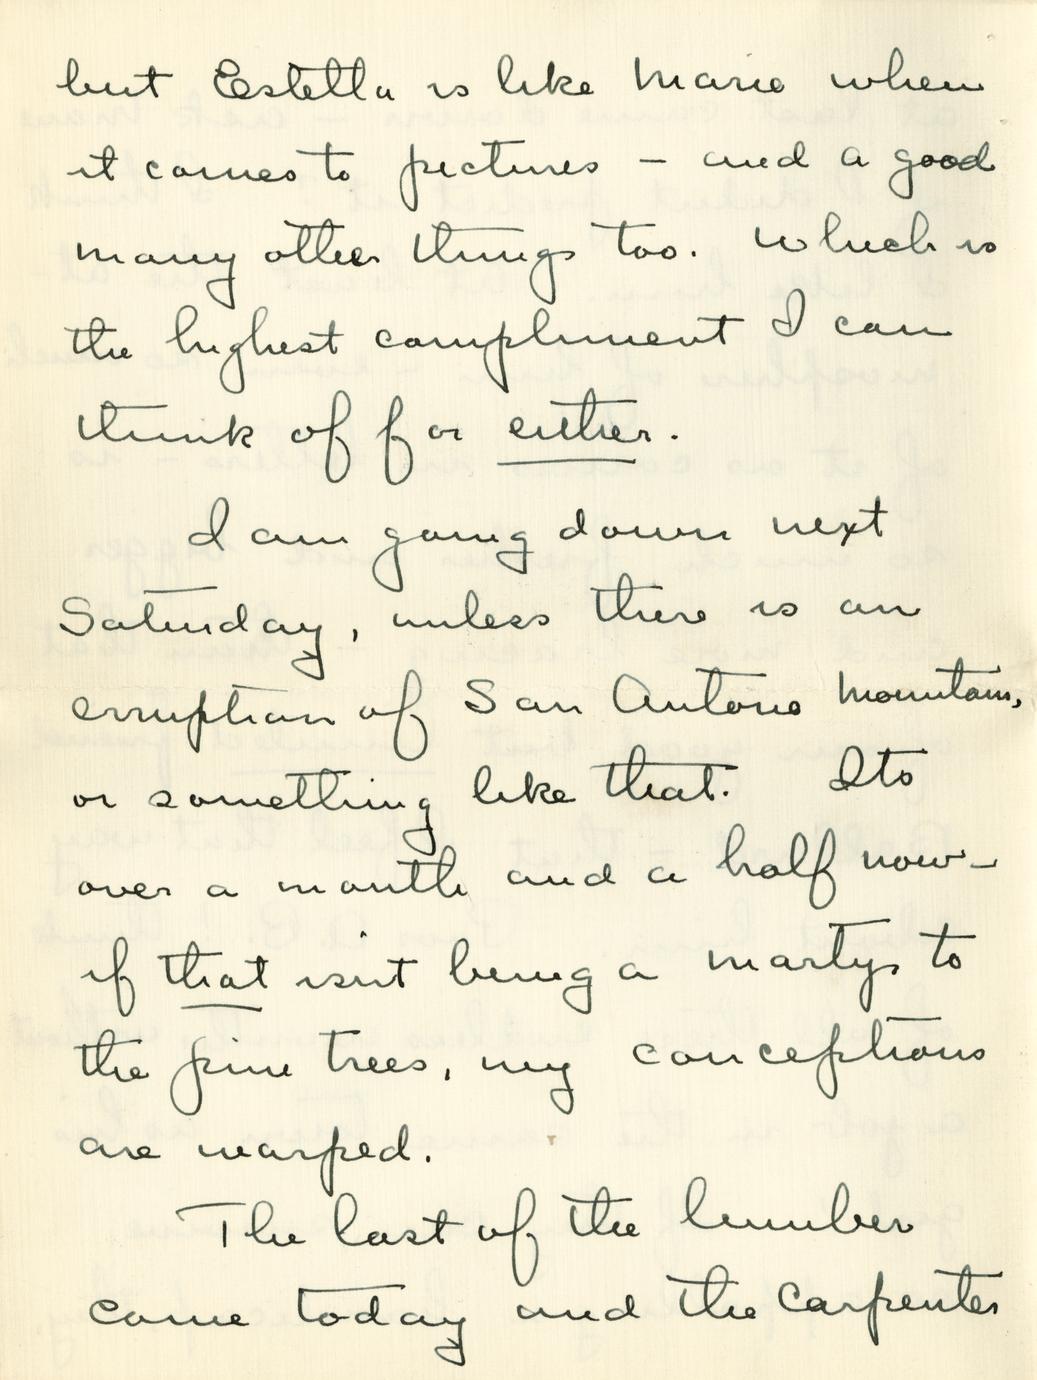 but Estella is like Marie when
it comes to pictures - and a good
many other things too. Which is
the highest compliment I can
think of for either.
I am going down next
Saturday, unless there is an
erruption of San Antonio Mountain,
or something like that. Its
over a month and a half now -
if that isn't being a martyr to
the pine trees, my conceptions
are warped.
The last of the lumber
came today and the carpenter